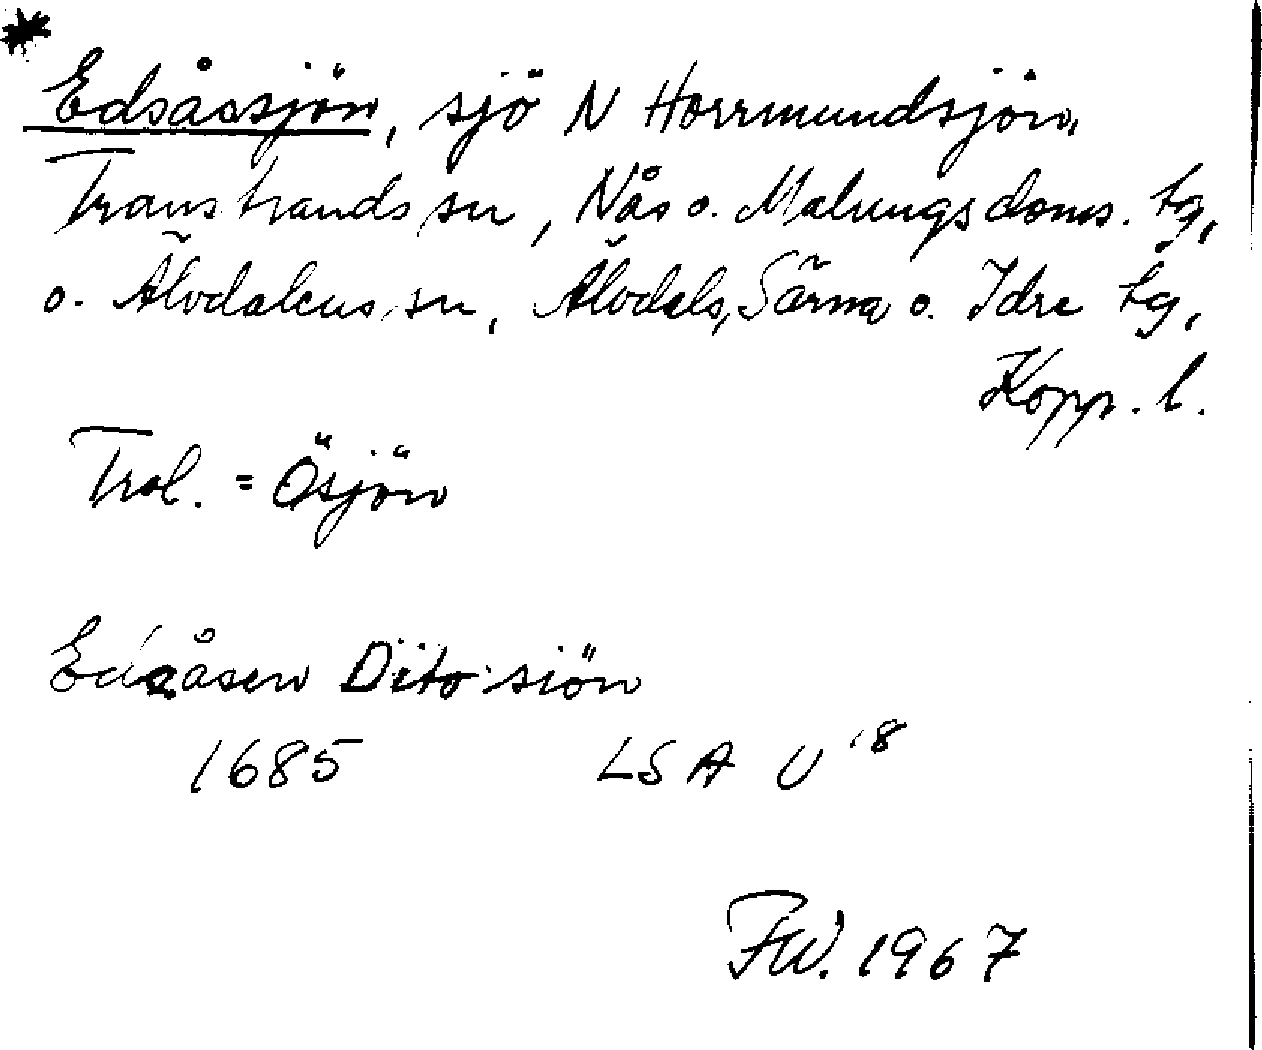 * Edsåssjön, sjö N Horrmundsjön,
Transtrands sn, Nås o. Malungs doms. tg,
o. Älvdalens sn, Älvdals, Särna o. Idre tg,
Kopp. l.
Trol. = Ösjön
Edzåsen Dito siön
1685 LSA U 18
FW. 1967